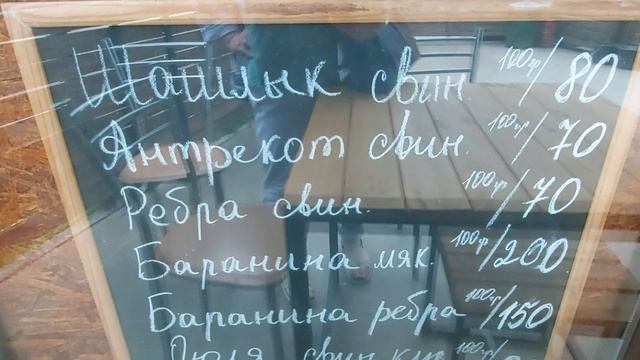 Шашлык свин. 100гр/80
Антрекот свин. 100гр/70
Ребра свин. 100гр/70
Баранина мяк. 100гр/200
Баранина ребра 100гр/150
Люля свин. 100гр/